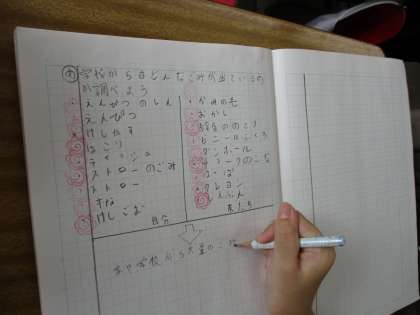 め 学校からはどんなごみが出ているの
か調べよう
えんぴつのしん
えんぴつ
けしかす
ほこり
ティッシュ
ストローのごみ
ストロー
すな
けしごむ
自分
かみの毛
おかし
給食ののこり
ビニールぶくろ
ダンボール
チョークのこな
クレヨン
友だち
学校から大量のごみ